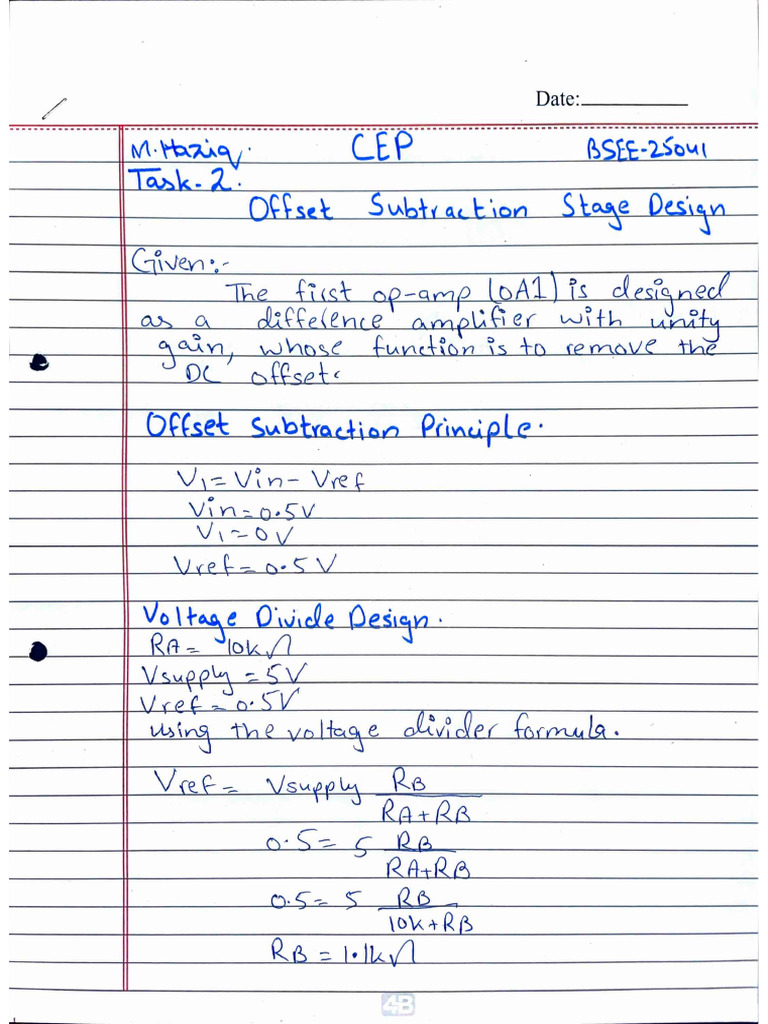 Date:
M.Haziq. CEP BSEE-25041
Task-2.
Offset Subtraction Stage Design
Given:-
The first op-amp (OA1) is designed
as a difference amplifier with unity
gain, whose function is to remove the
DC offset.
Offset Subtraction Principle.
V1 = Vin - Vref
Vin = 0.5V
V1 = 0V
Vref = 0.5V
Voltage Divide Design.
RA = 10kΩ
Vsupply = 5V
Vref = 0.5V
using the voltage divider formula.
Vref = Vsupply RB
RA+RB
0.5 = 5 RB
RA+RB
0.5 = 5 RB
10k+RB
RB = 1.1kΩ
4B